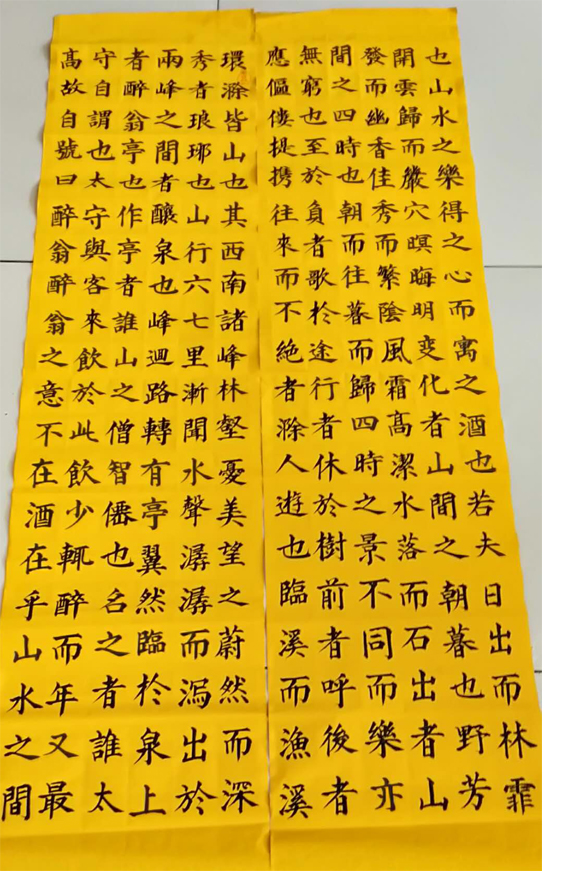 環滁皆山也其西南諸峰林壑憂美望之蔚然而深
秀者琅琊也山行六七里漸聞水聲潺潺而瀉出於
兩峰之間者釀泉也峰迴路轉有亭翼然臨於泉上
者醉翁亭也作亭者誰山之僧智僊也名之者誰太
守自謂也太守與客來飲於此飲少輒醉而年又最
髙故自號曰醉翁醉翁之意不在酒在乎山水之間
也山水之樂得之心而寓之酒也若夫日出而林霏
開雲歸而巖穴暝晦明变化者山間之朝暮也野芳
發而幽香佳秀而繁陰風霜髙潔水落而石出者山
間之四時也朝而往暮而歸四時之景不同而樂亦
無窮也至於負者歌於途行者休於樹前者呼後者
應傴僂提携往來而不絶者滁人遊也臨溪而漁溪